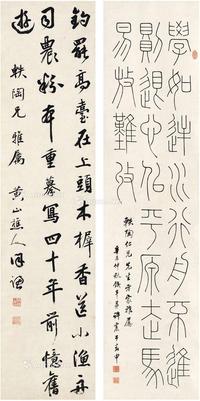 學如逆水行舟不進
則退心似平原走馬
易放難收
軼陶仁兄先生方家雅屬
釣罷高臺在上頭木樨香送小漁舟
司農粉本重摹寫四十年前憶舊
遊
軼陶兄雅屬 黃山